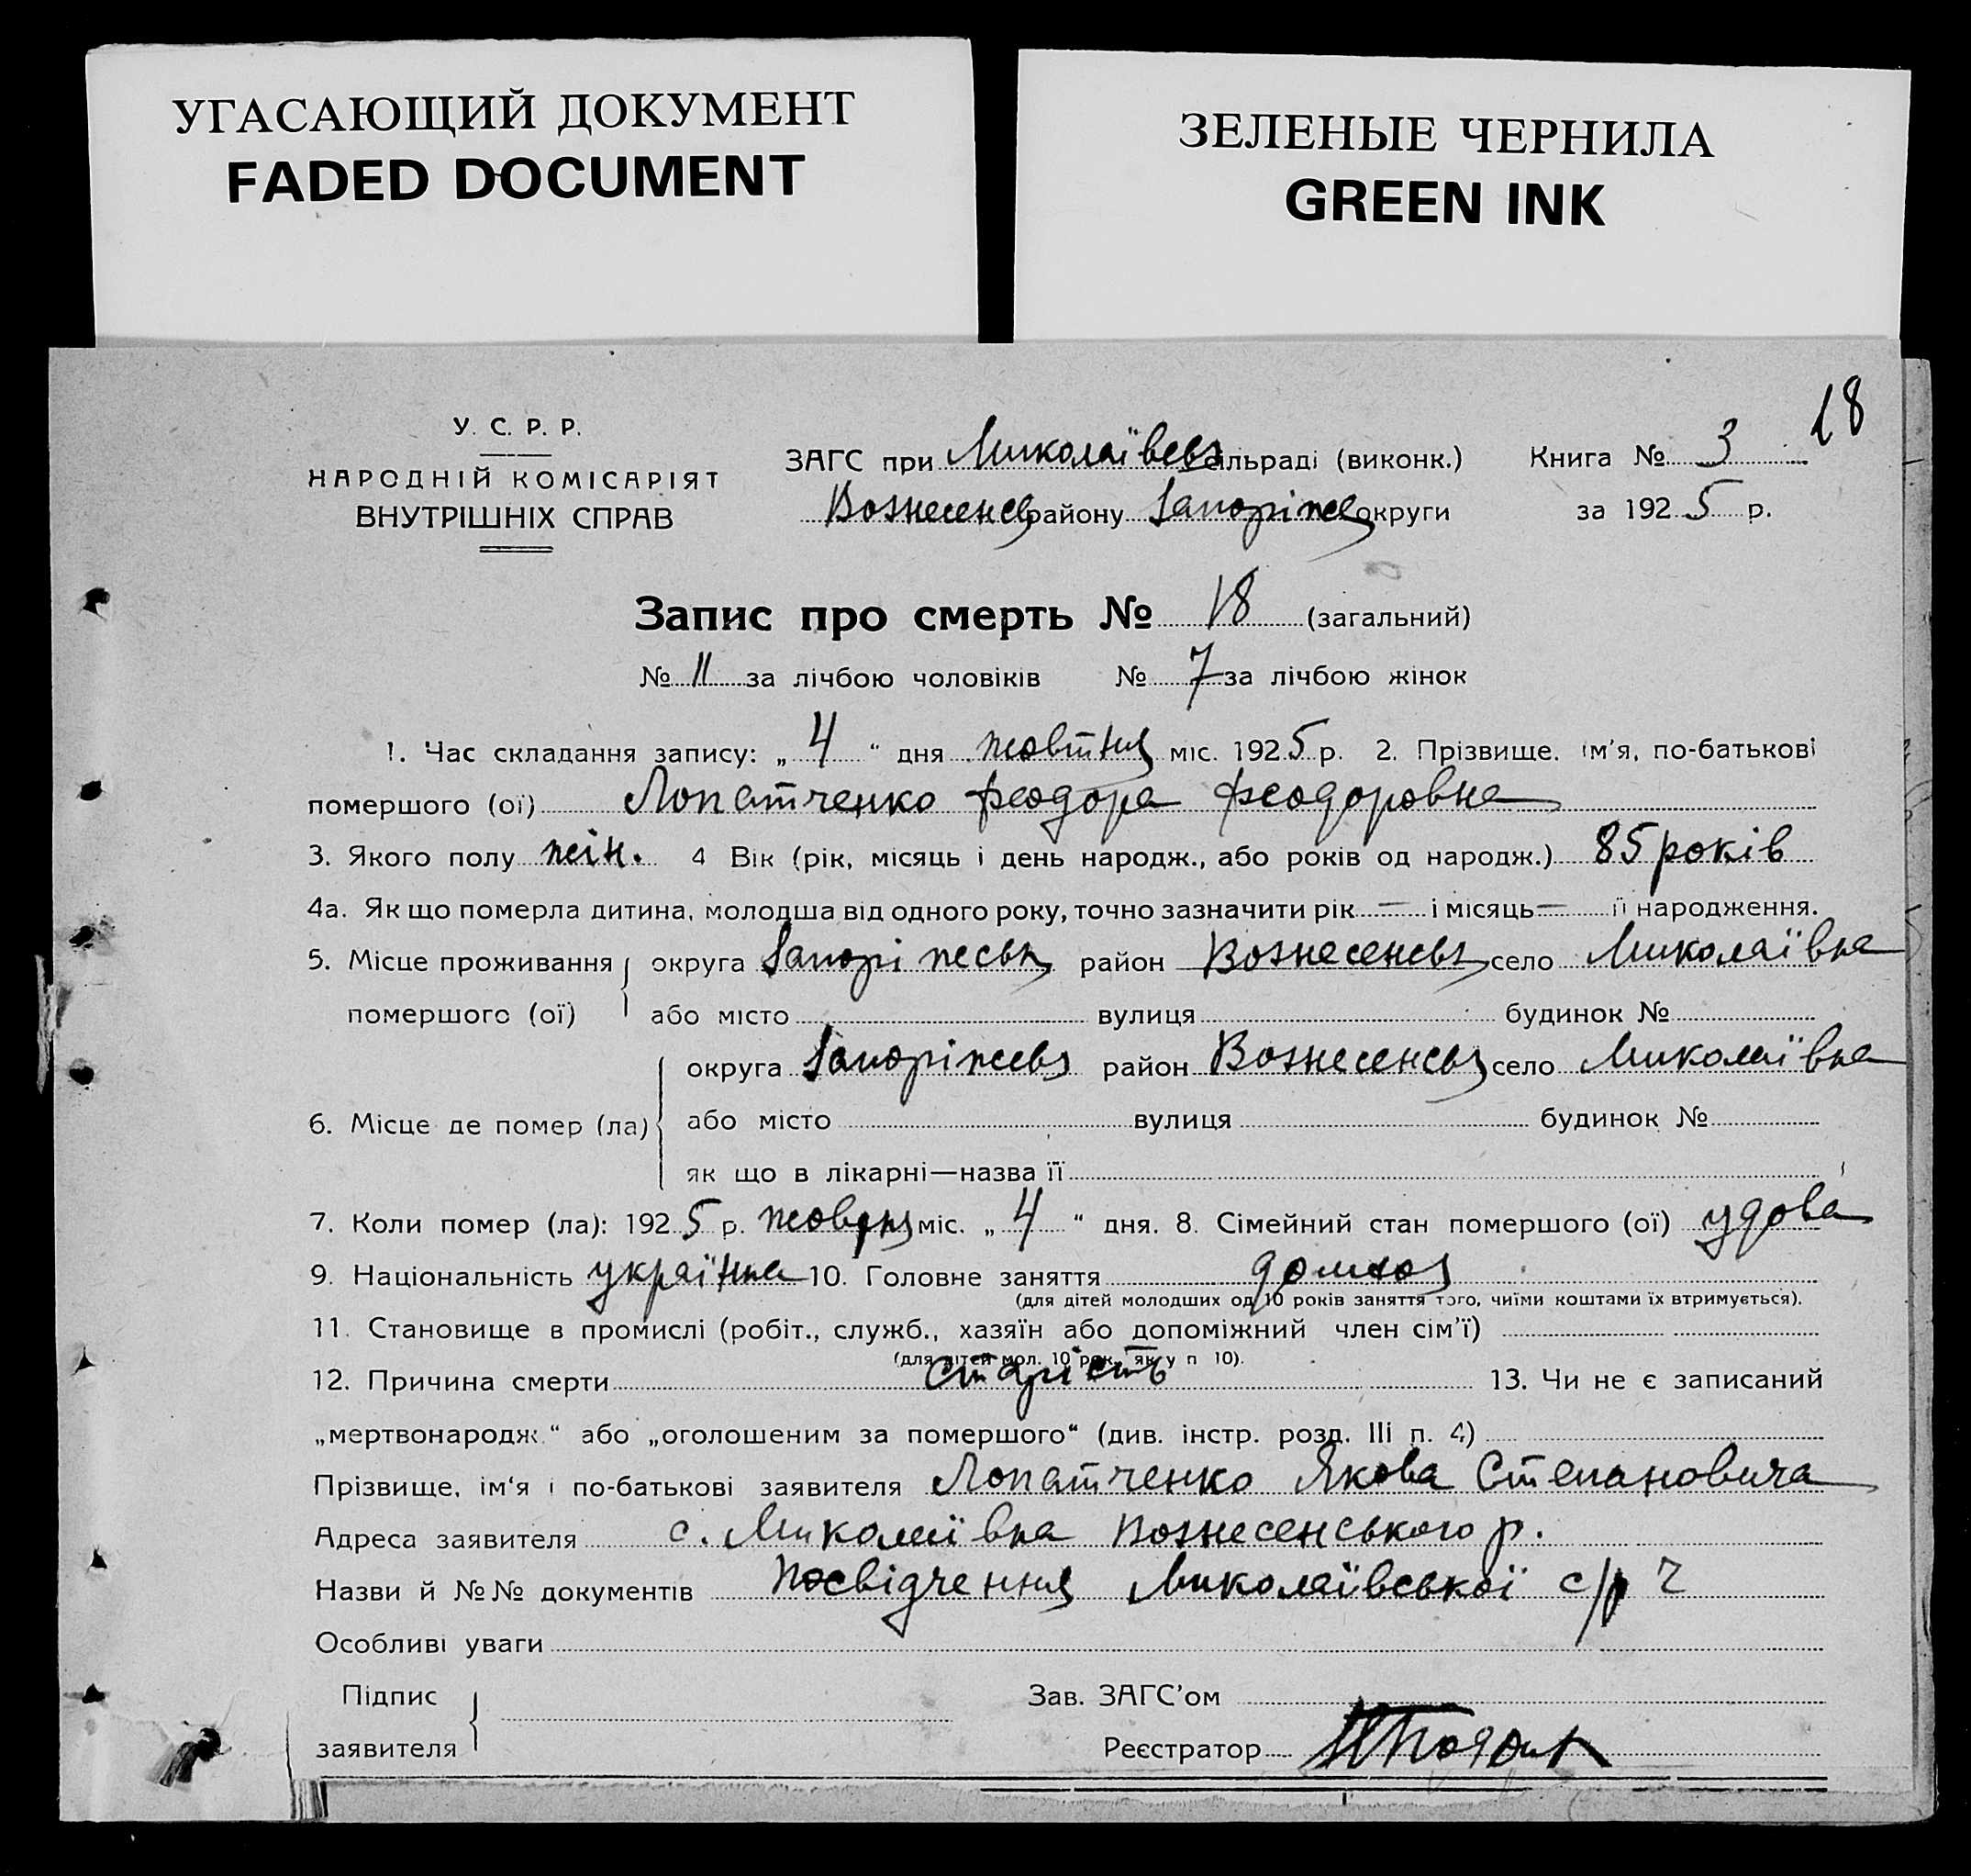 УГАСАЮЩИЙ ДОКУМЕНТ
FADED DOCUMENT
ЗЕЛЕНЫЕ ЧЕРНИЛА
GREEN INK
18
У. С. Р. Р.
НАРОДНІЙ КОМІСАРІЯТ
ВНУТРІШНІХ СПРАВ
ЗАГС при Миколаївськ сільраді (виконк.)
Вознесенськ району Запоріжськ округи
Книга № 3
за 1925 р.
Запис про смерть № 18 (загальний)
№ 11 за лічбою чоловіків № 7 за лічбою жінок
1. Час складання запису: „ 4 “ дня жовтня міс. 1925 р. 2. Прізвище. ім'я, по-батькові
помершого (ої) Лопатченко Феодора Феодоровна
3. Якого полу жін. 4 Вік (рік, місяць і день народж., або років од народж.) 85 років
4а. Як що померла дитина, молодша від одного року, точно зазначити рік — і місяць — її народження.
5. Місце проживання округа Запоріжськ район Вознесенськ село Миколаївка
помершого (ої) або місто вулиця будинок №
округа Запоріжськ район Вознесенськ село Миколаївка
6. Місце де помер (ла) або місто вулиця будинок №
як що в лікарні—назва її
7. Коли помер (ла): 1925 р. жовтня міс. „ 4 “ дня. 8. Сімейний стан помершого (ої) удова
9. Національність українка 10. Головне заняття домхоз
(для дітей молодших од 10 років заняття того, чиїми коштами їх втримується).
11. Становище в промислі (робіт., служб., хазяїн або допоміжний член сім'ї)
(для дітей мол. 10 рок. як у п 10).
12. Причина смерти старість 13. Чи не є записаний
„мертвонародж.“ або „оголошеним за помершого“ (див. інстр. розд. III п. 4)
Прізвище, ім'я і по-батькові заявителя Лопатченко Якова Степановича
Адреса заявителя с. Миколаївка Вознесенського р.
Назви й №№ документів посвідчення Миколаївської с/р
Особливі уваги
Підпис
заявителя
Зав. ЗАГС'ом
Реєстратор